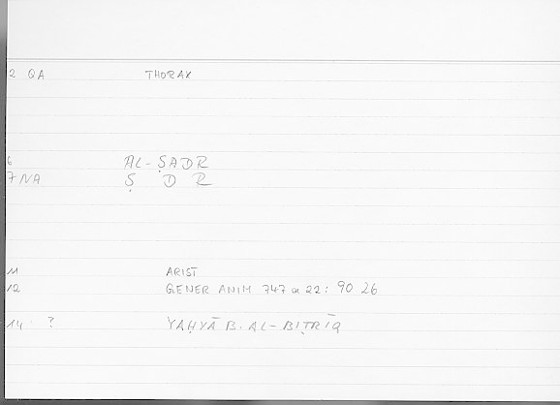 2 QA THORAX
6 AL-ṢADR
7 NA Ṣ D R
11 ARIST
12 GENER ANIM 747 a 22: 90 26
14 ? YAḤYĀ B. AL-BIṬRĪQ